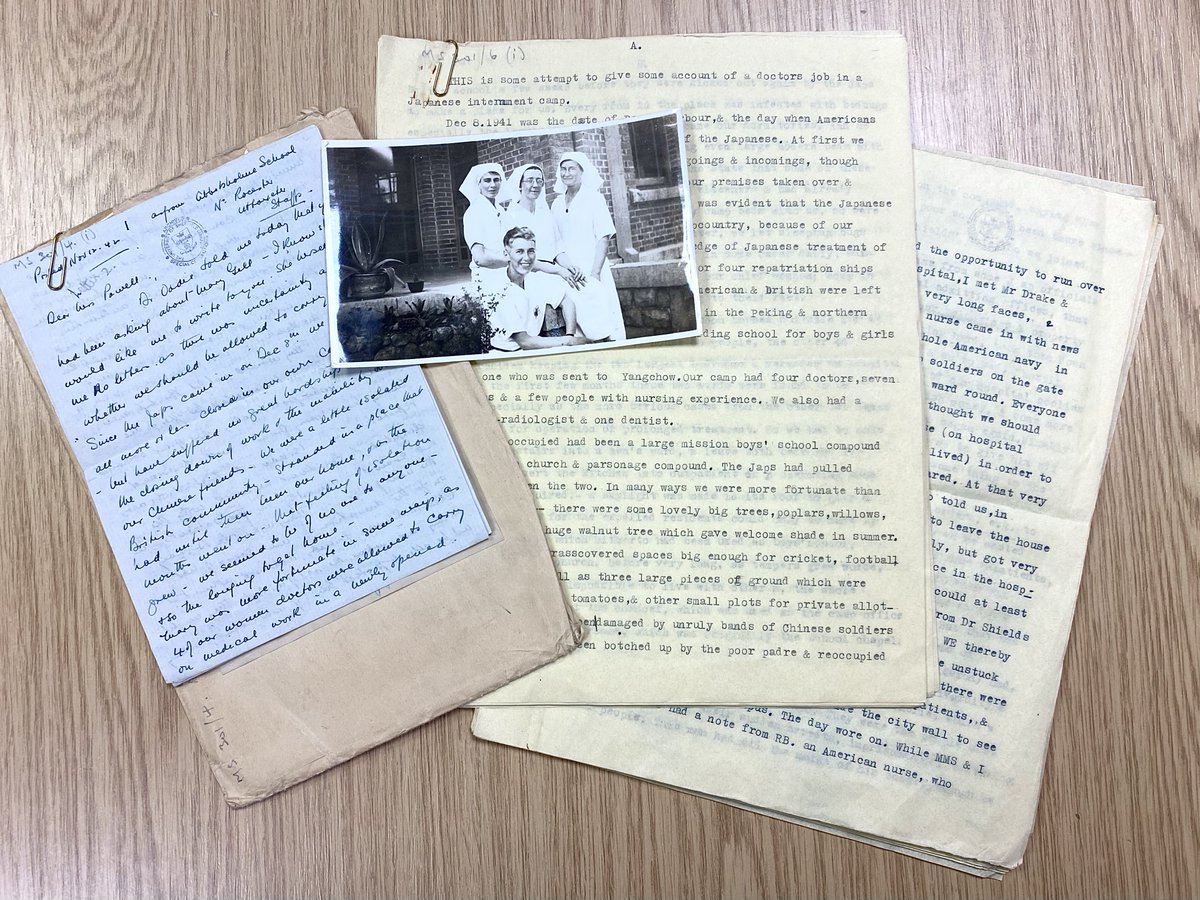 MS 201/4 (i)
Abbotsholme School
Nr Rocester
Uttoxeter
Staffs
Dear Miss Powell,
Dr Dodie told me today that
had been asking about Mary Gell - I know
would like me to write to you. She
me no letter as there was uncertainty
whether we should be allowed to carry
Since the Japs came in on "Dec 8th" we
all more or less closed in our own
- but have suffered no great hardships
the closing down of work & the inability to
our Chinese friends - We were a little isolated
British community - stranded in a place that
had until then been our home, & as the
months went on that feeling of isolation
grew - we seemed to be of no use to anyone -
& so the longing to get home -
Mary was more fortunate in some ways, as
4 of our women doctors were allowed to carry
on medical work in a newly opened
MS 201/4
MS 201/6 (i)
A.
THIS is some attempt to give some account of a doctors job in a
Japanese internment camp.
Dec 8.1941 was the date of bour,& the day when Americans
f the Japanese. At first we
goings & incomings, though
our premises taken over &
was evident that the Japanese
country, because of our
dge of Japanese treatment of
or four repatriation ships
merican & British were left
in the Peking & northern
ding school for boys & girls
one who was sent to Yangchow.Our camp had four doctors,seven
s & a few people with nursing experience. We also had a
-radiologist & one dentist.
occupied had been a large mission boys' school compound
church & parsonage compound. The Japs had pulled
n the two. In many ways we were more fortunate than
- there were some lovely big trees,poplars,willows,
huge walnut tree which gave welcome shade in summer.
rasscovered spaces big enough for cricket, football
ll as three large pieces of ground which were
tomatoes,& other small plots for private allot-
endamaged by unruly bands of Chinese soldiers
en botched up by the poor padre & reoccupied
d the opportunity to run over
spital,I met Mr Drake &
very long faces, &
nurse came in with news
hole American navy in
soldiers on the gate
ward round. Everyone
thought we should
se (on hospital
lived) in order to
red. At that very
o told us,in
to leave the house
ly, but got very
ce in the hosp-
could at least
from Dr Shields
WE thereby
e unstuck
there were
atients, &
re the city wall to see
pus. The day wore on. While MMS & I
had a note from RB. an American nurse, who